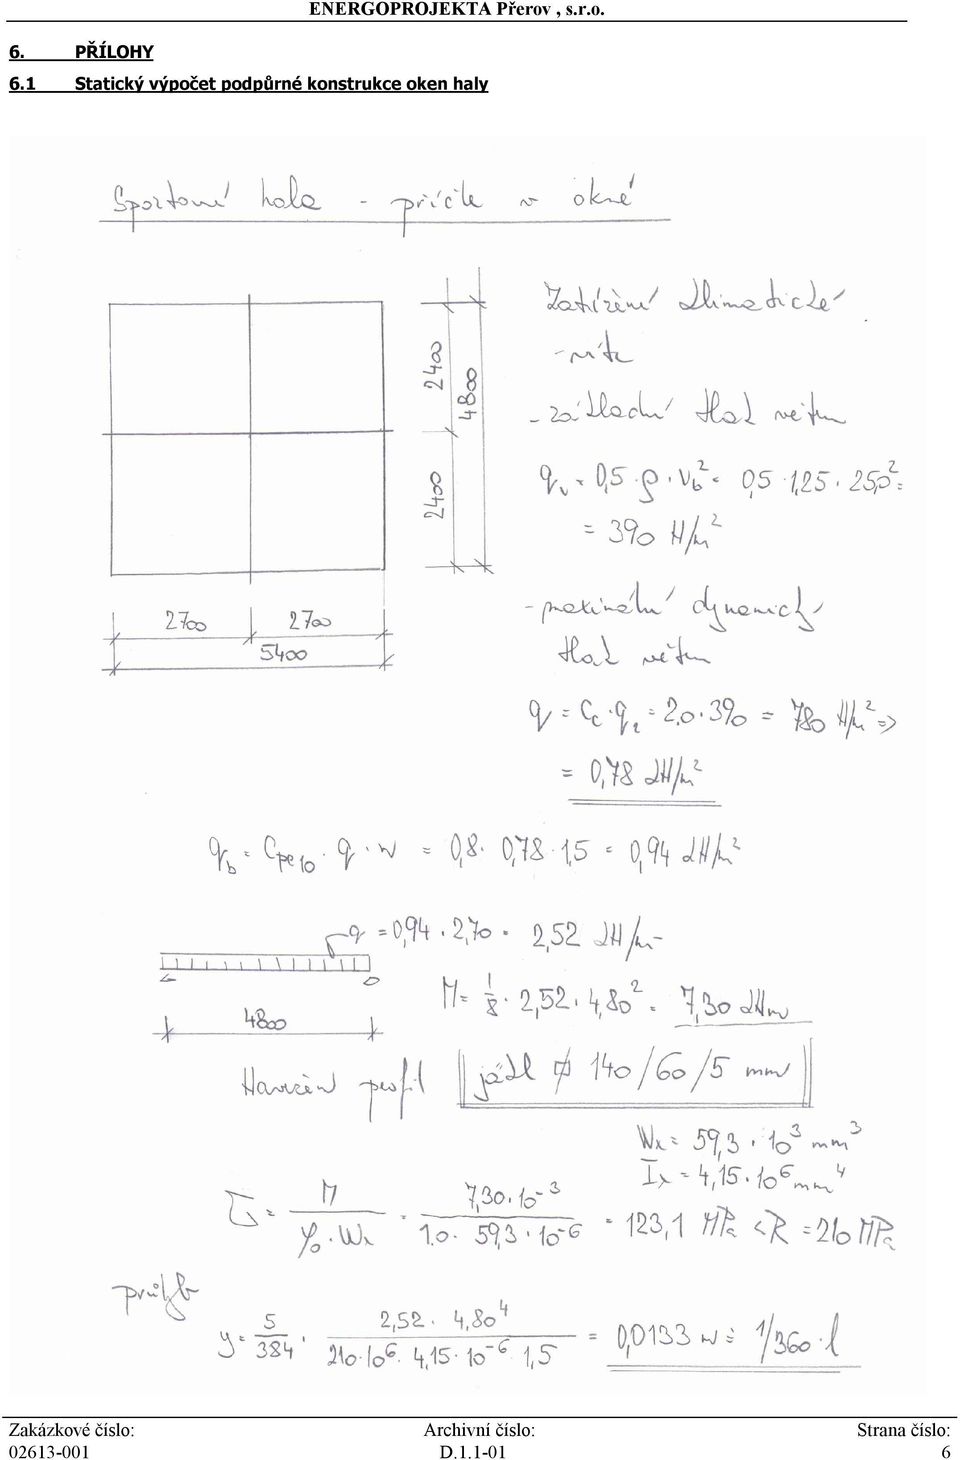 ENERGOPROJEKTA Přerov , s.r.o.
6. PŘÍLOHY
6.1 Statický výpočet podpůrné konstrukce oken haly
Sportovní hala - příčle v okně
2400
2400
4800
2700 2700
5400
Zatížení klimatické
- vítr
- základní tlak větru
qv = 0,5 · ρ · vb² = 0,5 · 1,25 · 25,0² =
= 390 N/m²
- maximální dynamický
tlak větru
= 2,0 · 390 = 780 N/m² =>
= 0,78 kN/m²
qb = Cpe10 · q · w = 0,8 · 0,78 · 1,5 = 0,94 kN/m²
q = 0,94 · 2,70 = 2,52 kN/m
4800
M = 1/8 · 2,52 · 4,80² = 7,30 kNm
Navržen profil jäkl 140/60/5 mm
Wx = 59,3 · 10³ mm³
Ix = 4,15 · 10⁶ mm⁴
M / φ0 · Wx = 7,30 · 10⁻³ / 1,0 · 59,3 · 10⁻⁶ = 123,1 MPa < R = 210 MPa
průhyb
y = 5/384 · 2,52 · 4,80⁴ / 210 · 10⁶ · 4,15 · 10⁻⁶ · 1,5 = 0,0133 m ≐ 1/360 · l
Zakázkové číslo: Archivní číslo: Strana číslo:
02613-001 D.1.1-01 6